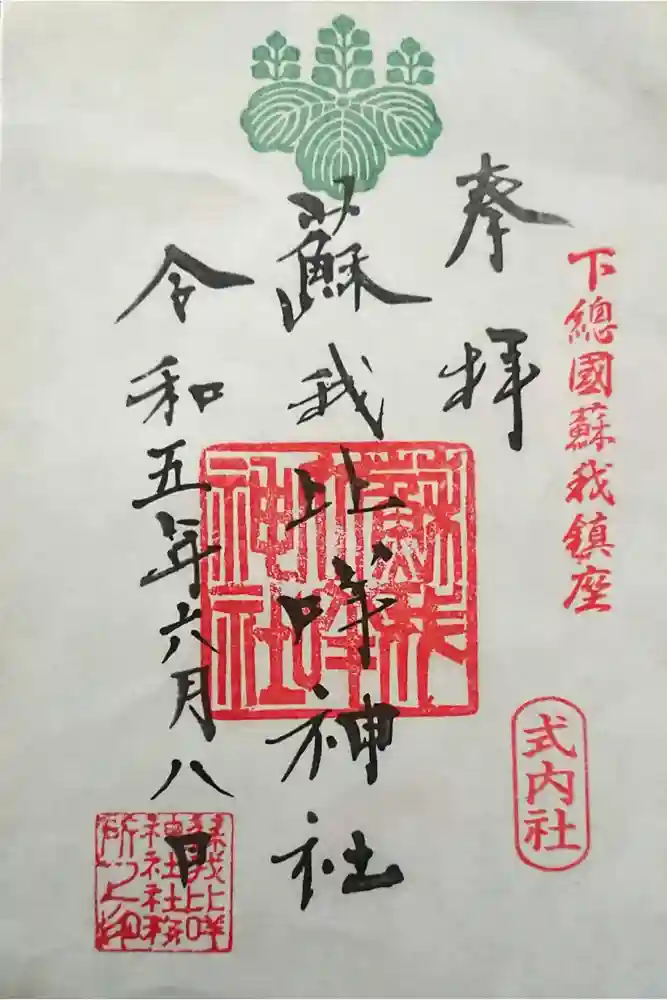 下總國蘇我鎮座
式内社
奉拝
蘇我比咩神社
蘇我比咩神社
令和五年六月八日
蘇我比咩神社社務所之印